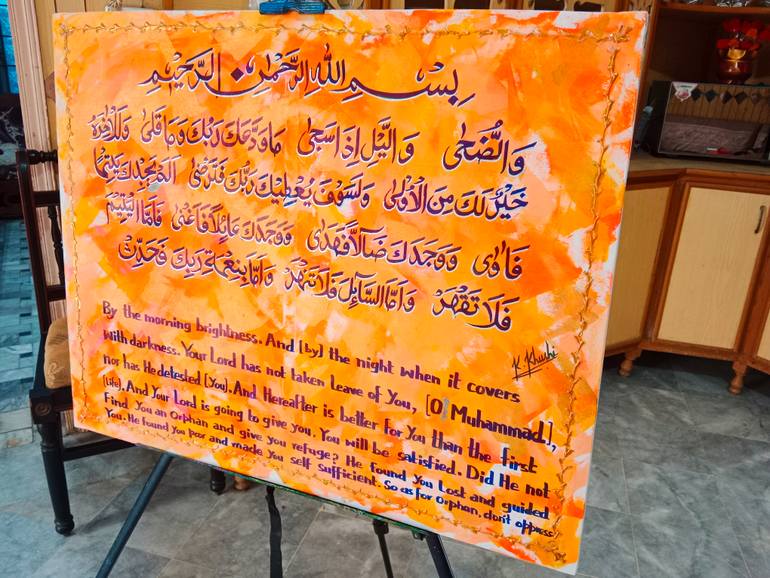 بِسْمِ اللهِ الرَّحْمٰنِ الرَّحِيْمِ
وَالضُّحٰى وَالَّيْلِ اِذَا سَجٰى مَا وَدَّعَكَ رَبُّكَ وَمَا قَلٰى وَلَلْاٰخِرَةُ
خَيْرٌ لَّكَ مِنَ الْاُوْلٰى وَلَسَوْفَ يُعْطِيْكَ رَبُّكَ فَتَرْضٰى اَلَمْ يَجِدْكَ يَتِيْمًا
فَاٰوٰى وَوَجَدَكَ ضَآلًّا فَهَدٰى وَوَجَدَكَ عَآئِلًا فَاَغْنٰى فَاَمَّا الْيَتِيْمَ
فَلَا تَقْهَرْ وَاَمَّا السَّآئِلَ فَلَا تَنْهَرْ وَاَمَّا بِنِعْمَةِ رَبِّكَ فَحَدِّثْ
K Khushi
By the morning brightness. And [by] the night when it covers
with darkness. Your Lord has not taken Leave of You, [O! Muhammad],
nor has He detested [You]. And Hereafter is better for You than the first
[Life]. And Your Lord is going to give you. You will be satisfied. Did He not
Find You an Orphan and give you refuge? He found You Lost and guided
You. He found you Poor and made You self Sufficient. So as for Orphan, don't oppress